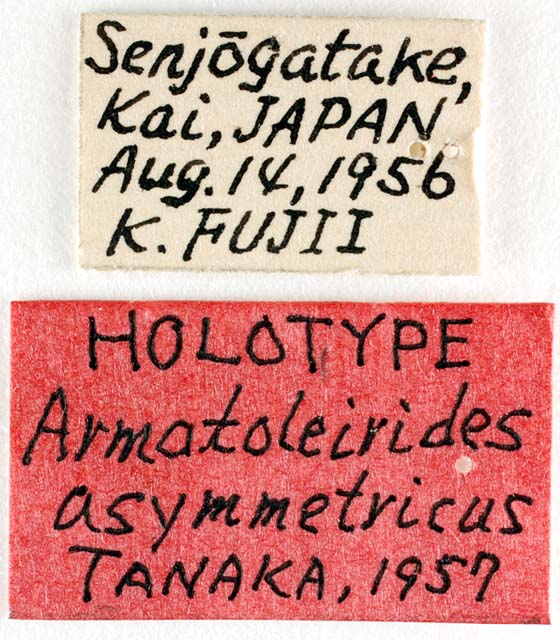 Senjōgatake,
Kai, JAPAN
Aug. 14, 1956
K. FUJII
HOLOTYPE
Armatoleirides
asymmetricus
TANAKA, 1957